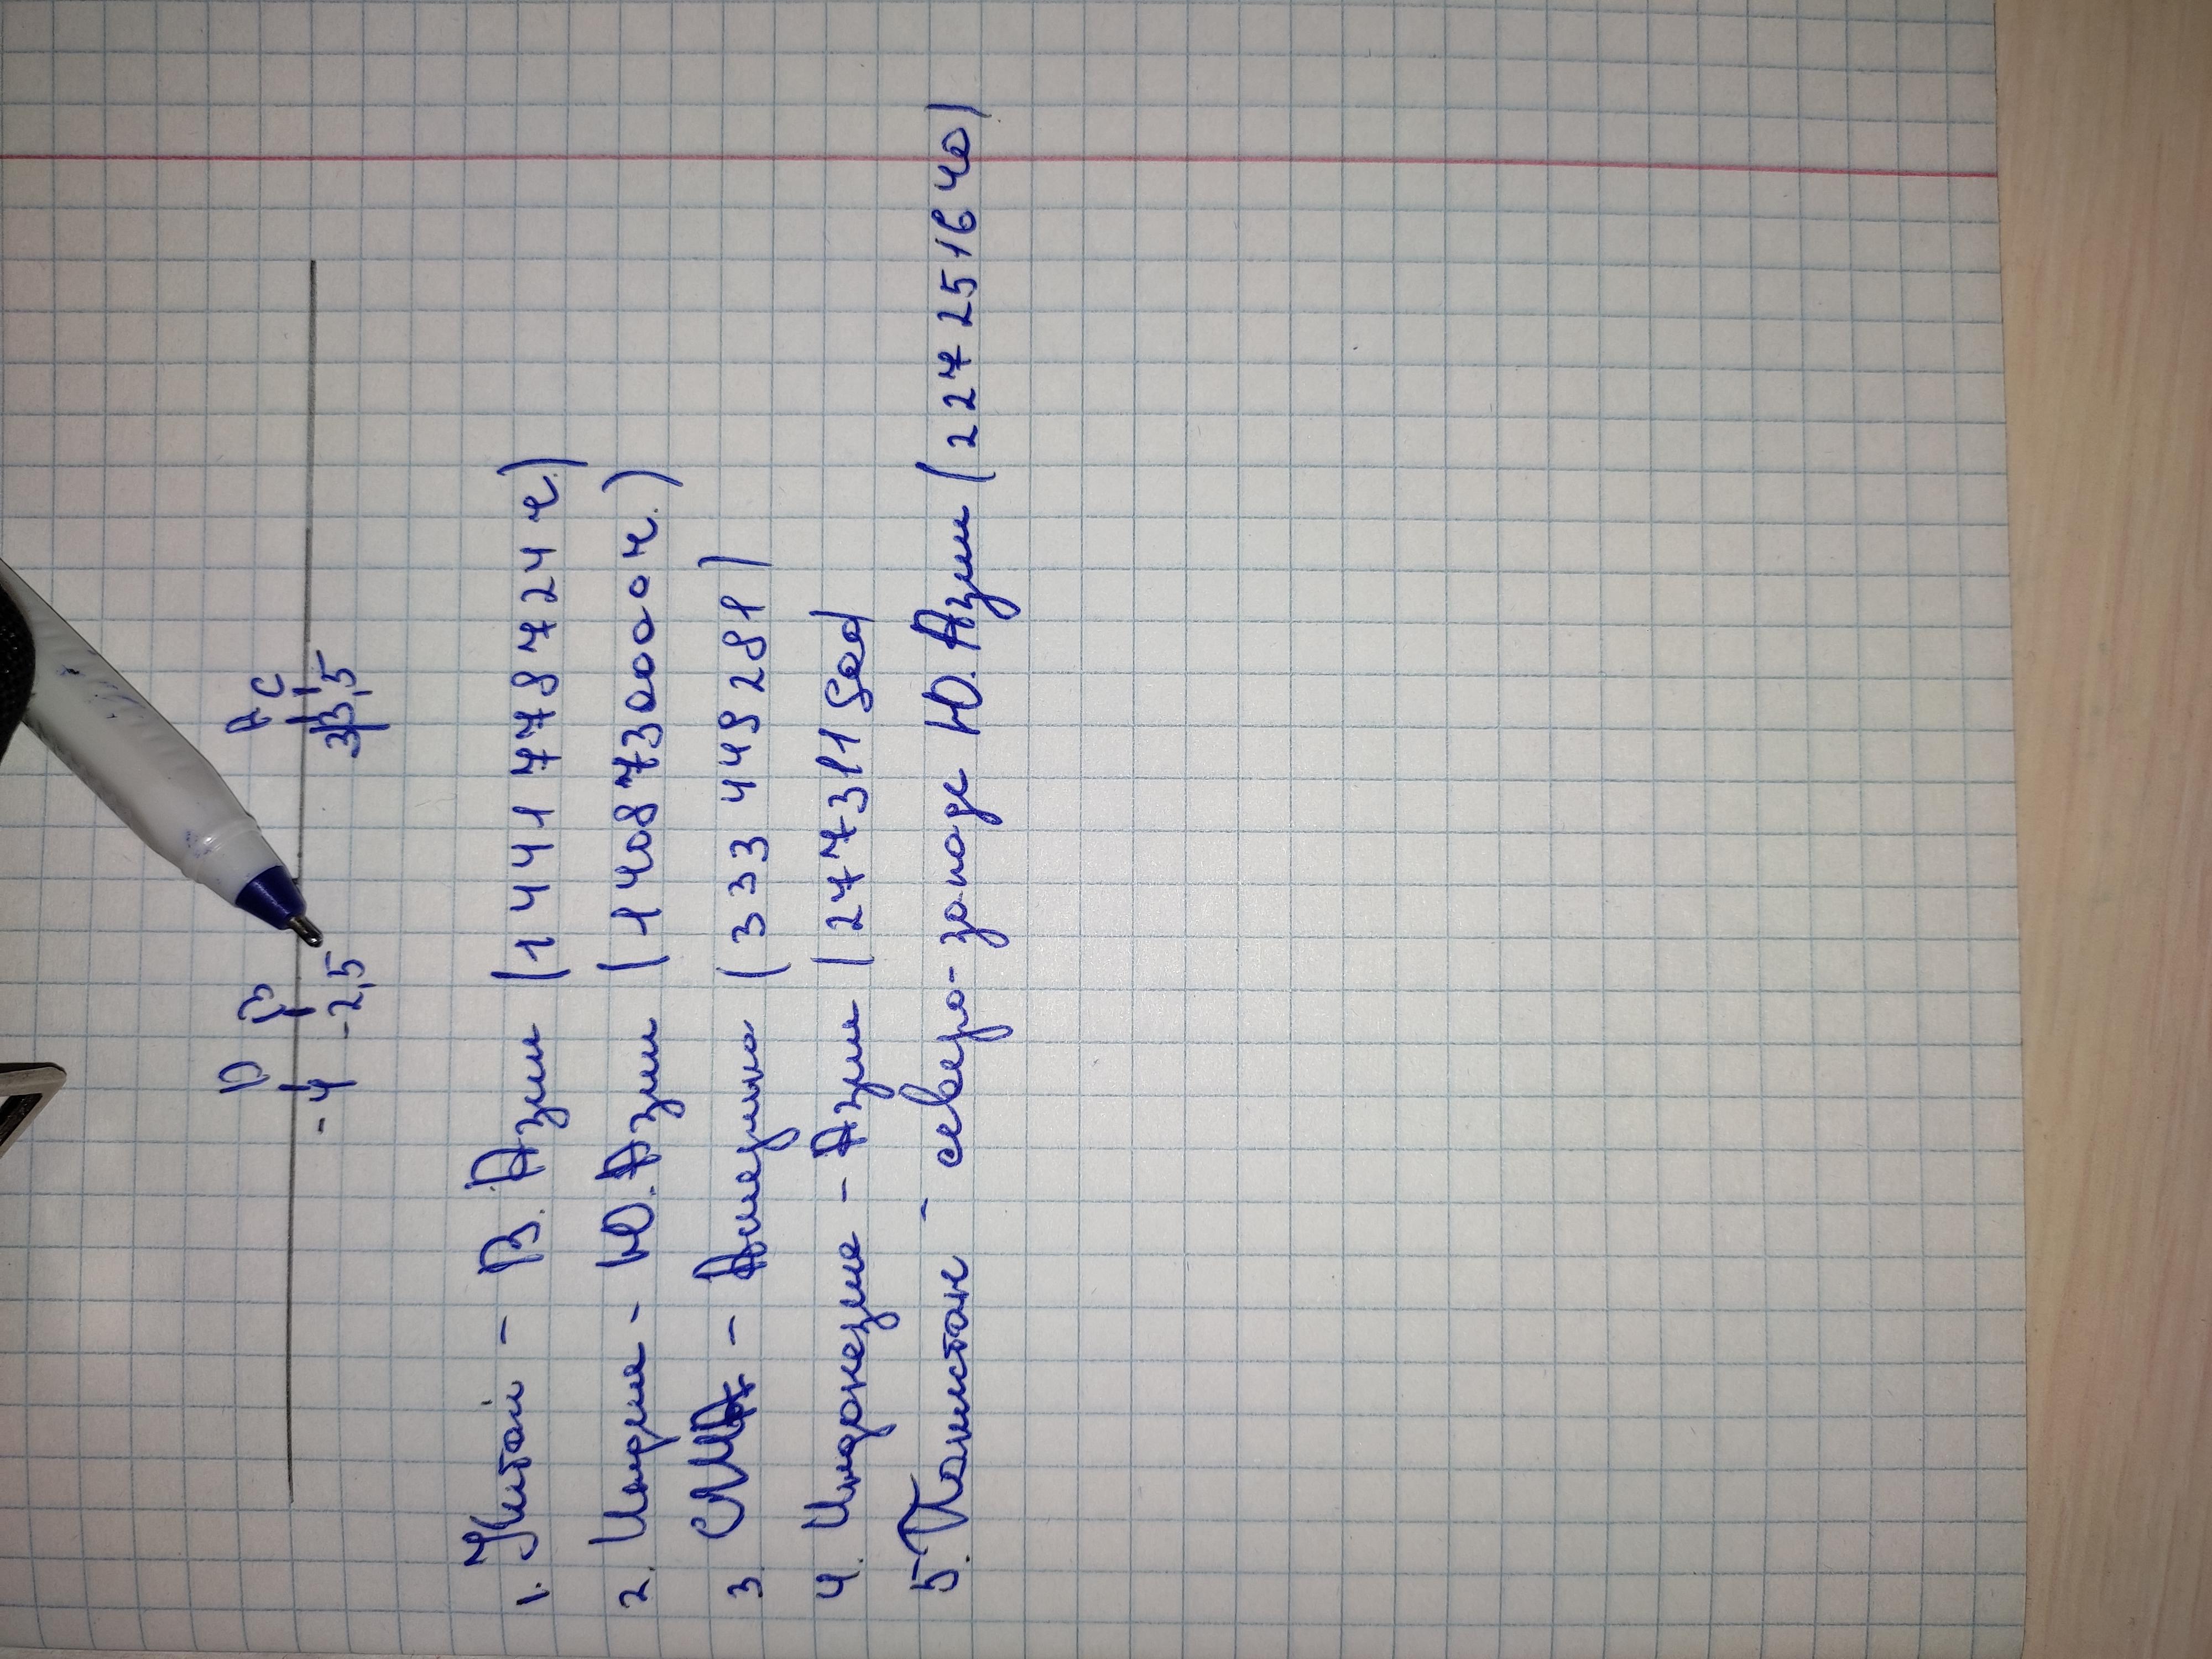 D B A C
-4 -2,5 3 3,5
1. Китай - В. Азии (1441778724 ч.)
2. Индия - Ю. Азии (1408730000 ч.)
3. США - Америка (333449281)
4. Индонезия - Азии (277311
5. Пакистан - северо-западе Ю. Азии (227251640)